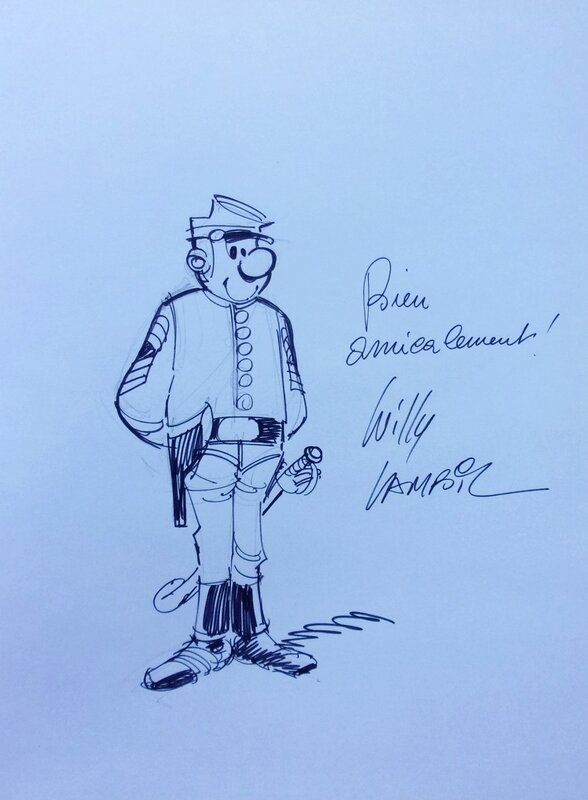 Bien
amicalement!
Willy
LAMBIL